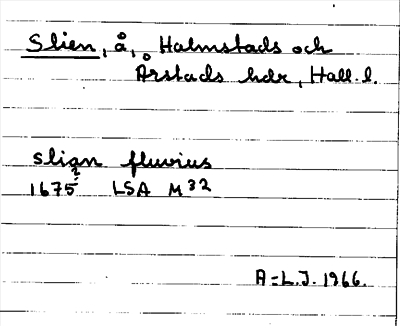 Slien, å, Halmstads och
Årstads hdr, Hall. l.
slign fluvius
?
1675 LSA M 32
A-L.J. 1966.